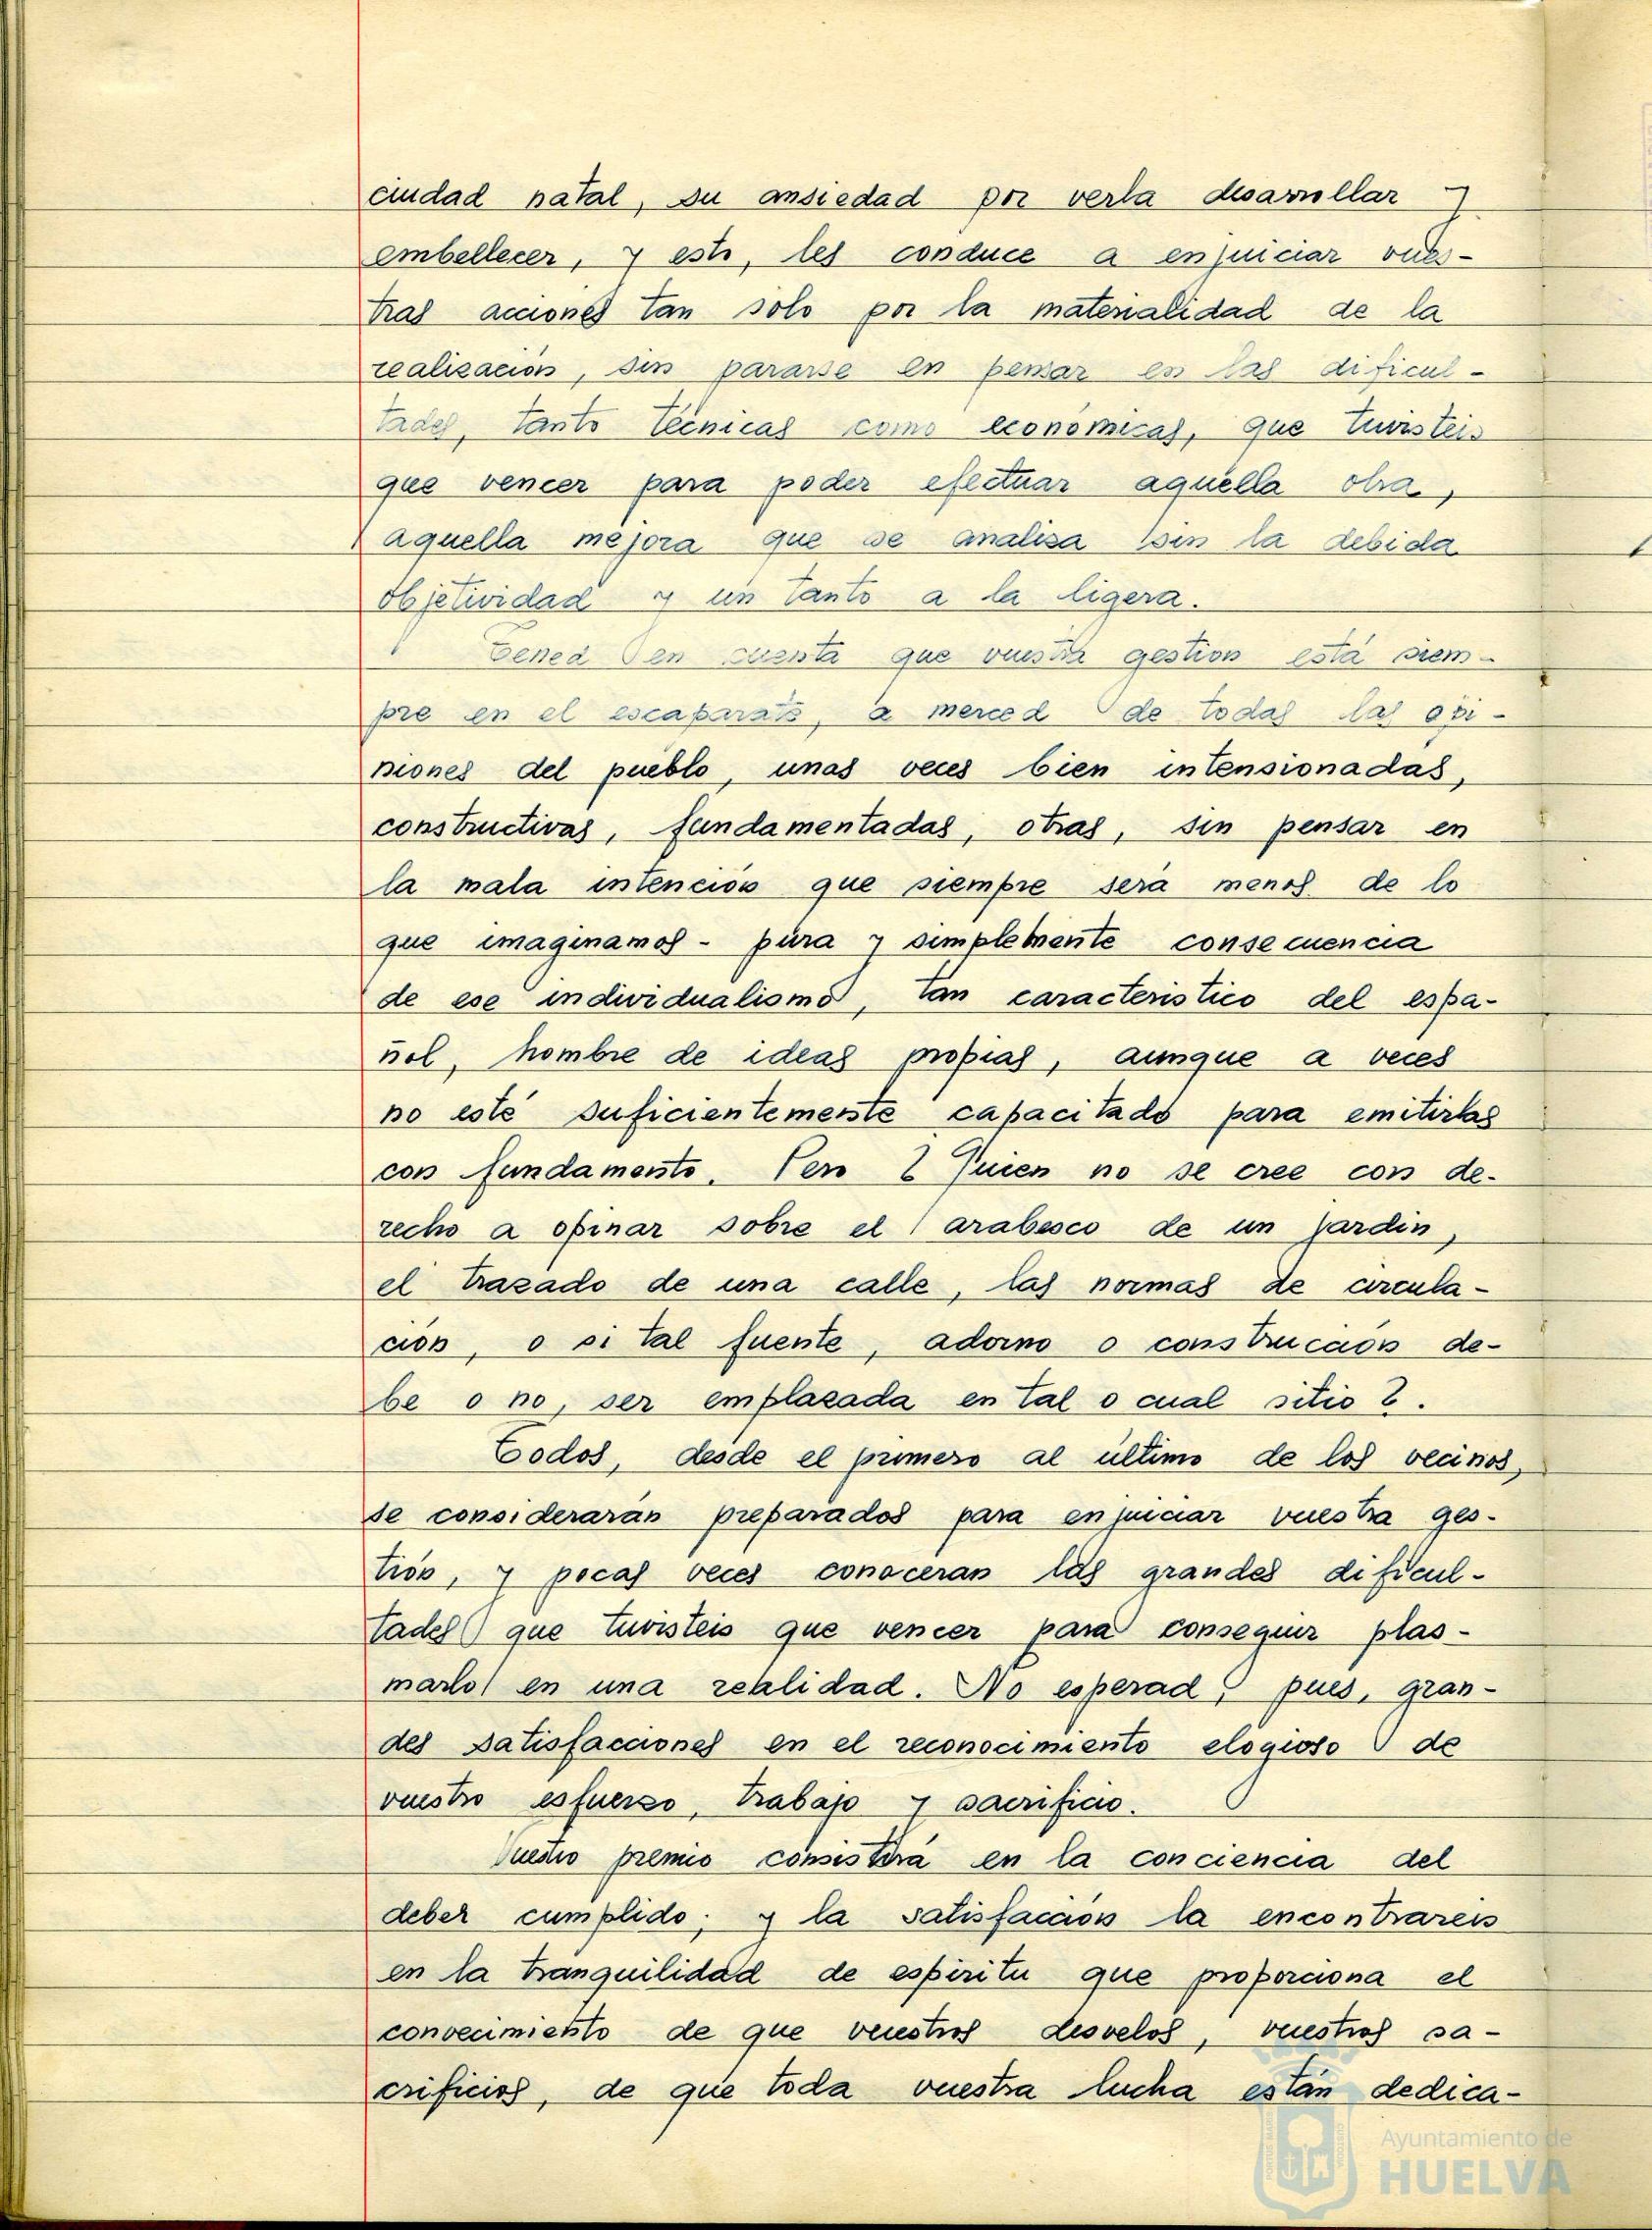 ciudad natal, su ansiedad por verla desarrollar y
embellecer, y esto, les conduce a enjuiciar vues-
tras acciones tan solo por la materialidad de la
realización, sin pararse en pensar en las dificul-
tades, tanto técnicas como económicas, que tuvisteis
que vencer para poder efectuar aquella obra,
aquella mejora que se analiza sin la debida
objetividad y un tanto a la ligera.
Tened en cuenta que vuestra gestion está siem-
pre en el escaparate, a merced de todas las opi-
niones del pueblo, unas veces bien intensionadas,
constructivas, fundamentadas, otras, sin pensar en
la mala intención que siempre será menos de lo
que imaginamos - pura y simplemente consecuencia
de ese individualismo, tan caracteristico del espa-
ñol, hombre de ideas propias, aunque a veces
no esté suficientemente capacitado para emitirlas
con fundamento. Pero ¿ Quien no se cree con de-
recho a opinar sobre el arabesco de un jardin,
el trazado de una calle, las normas de circula-
ción, o si tal fuente, adorno o construcción de-
be o no, ser emplazada en tal o cual sitio ?.
Todos, desde el primero al último de los vecinos,
se considerarán preparados para enjuiciar vuestra ges-
tión, y pocas veces conoceran las grandes dificul-
tades que tuvisteis que vencer para conseguir plas-
marlo en una realidad. No esperad, pues, gran-
des satisfacciones en el reconocimiento elogioso de
vuestro esfuerzo, trabajo y sacrificio.
Vuestro premio consistirá en la conciencia del
deber cumplido; y la satisfacción la encontrareis
en la tranquilidad de espiritu que proporciona el
convecimiento de que vuestros desvelos, vuestros sa-
crificios, de que toda vuestra lucha están dedica-
Ayuntamiento de
HUELVA